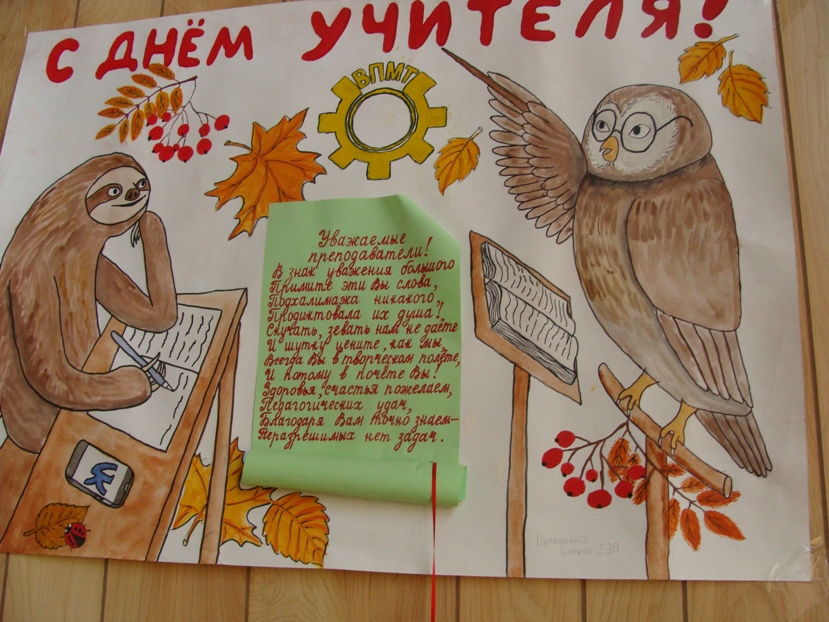 С ДНЁМ УЧИТЕЛЯ!
ВПМТ
Уважаемые
преподаватели!
В знак уважения большого
Примите эти Вы слова,
Подхалимажа никакого,
Продиктовала их душа!
Скучать, зевать нам не даёте
И шутку цените, как мы,
Всегда Вы в творческом полёте,
И потому в почёте Вы!
Здоровья, счастья пожелаем,
Педагогических удач,
Благодаря Вам точно знаем-
Неразрешимых нет задач.